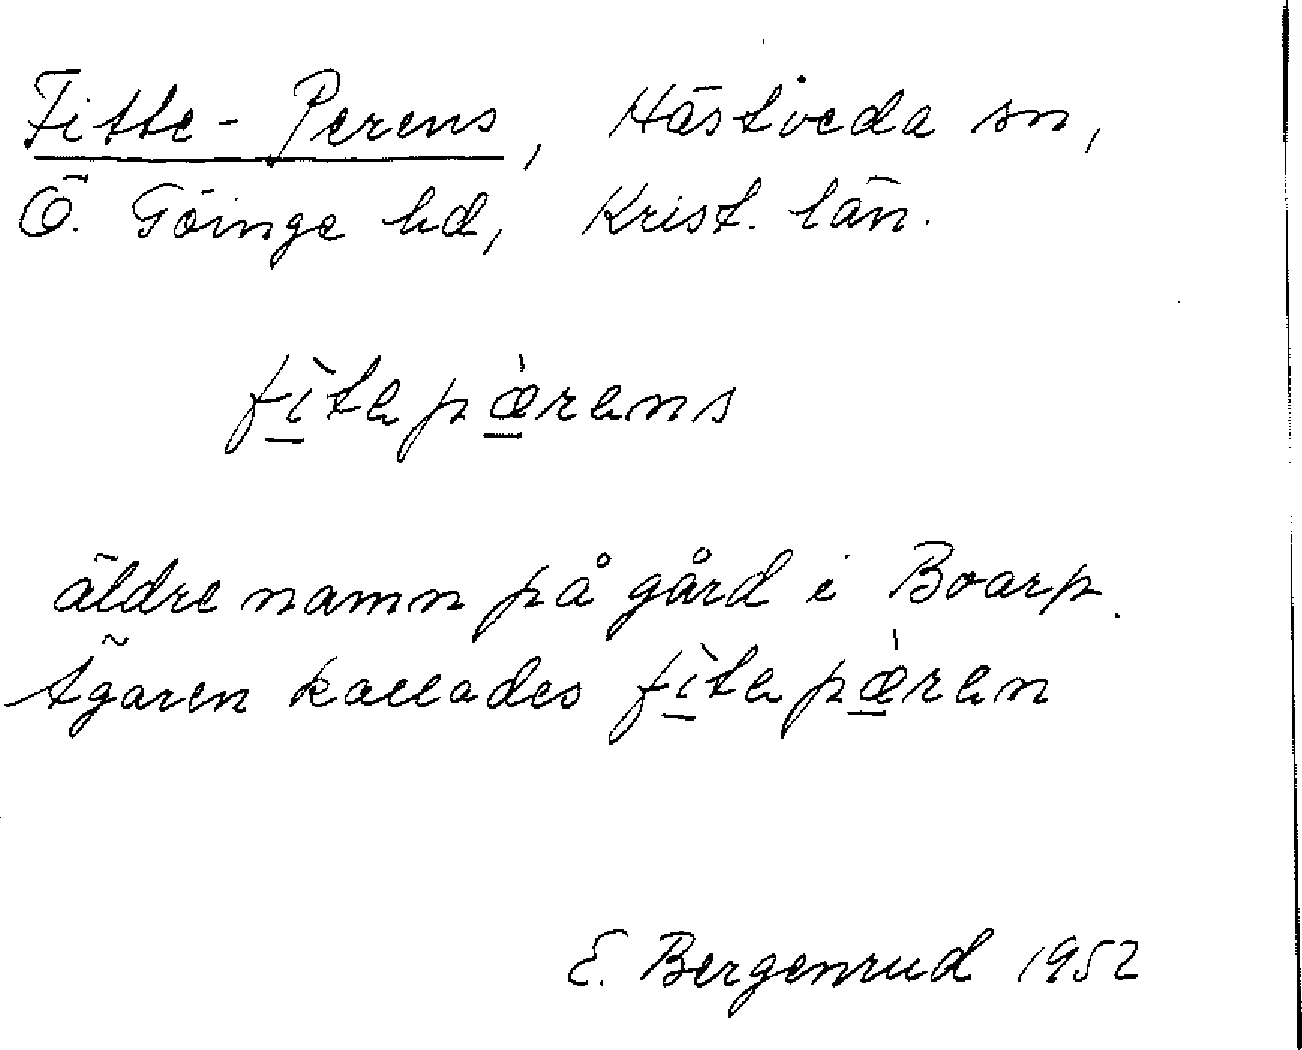 Fitte-Perens, Hästveda sn,
Ö. Göinge hd, Krist. län.
fìtapæ̀rans
äldre namn på gård i Boarp.
Ägaren kallades fìtapæ̀ran
E. Bergenrud 1952